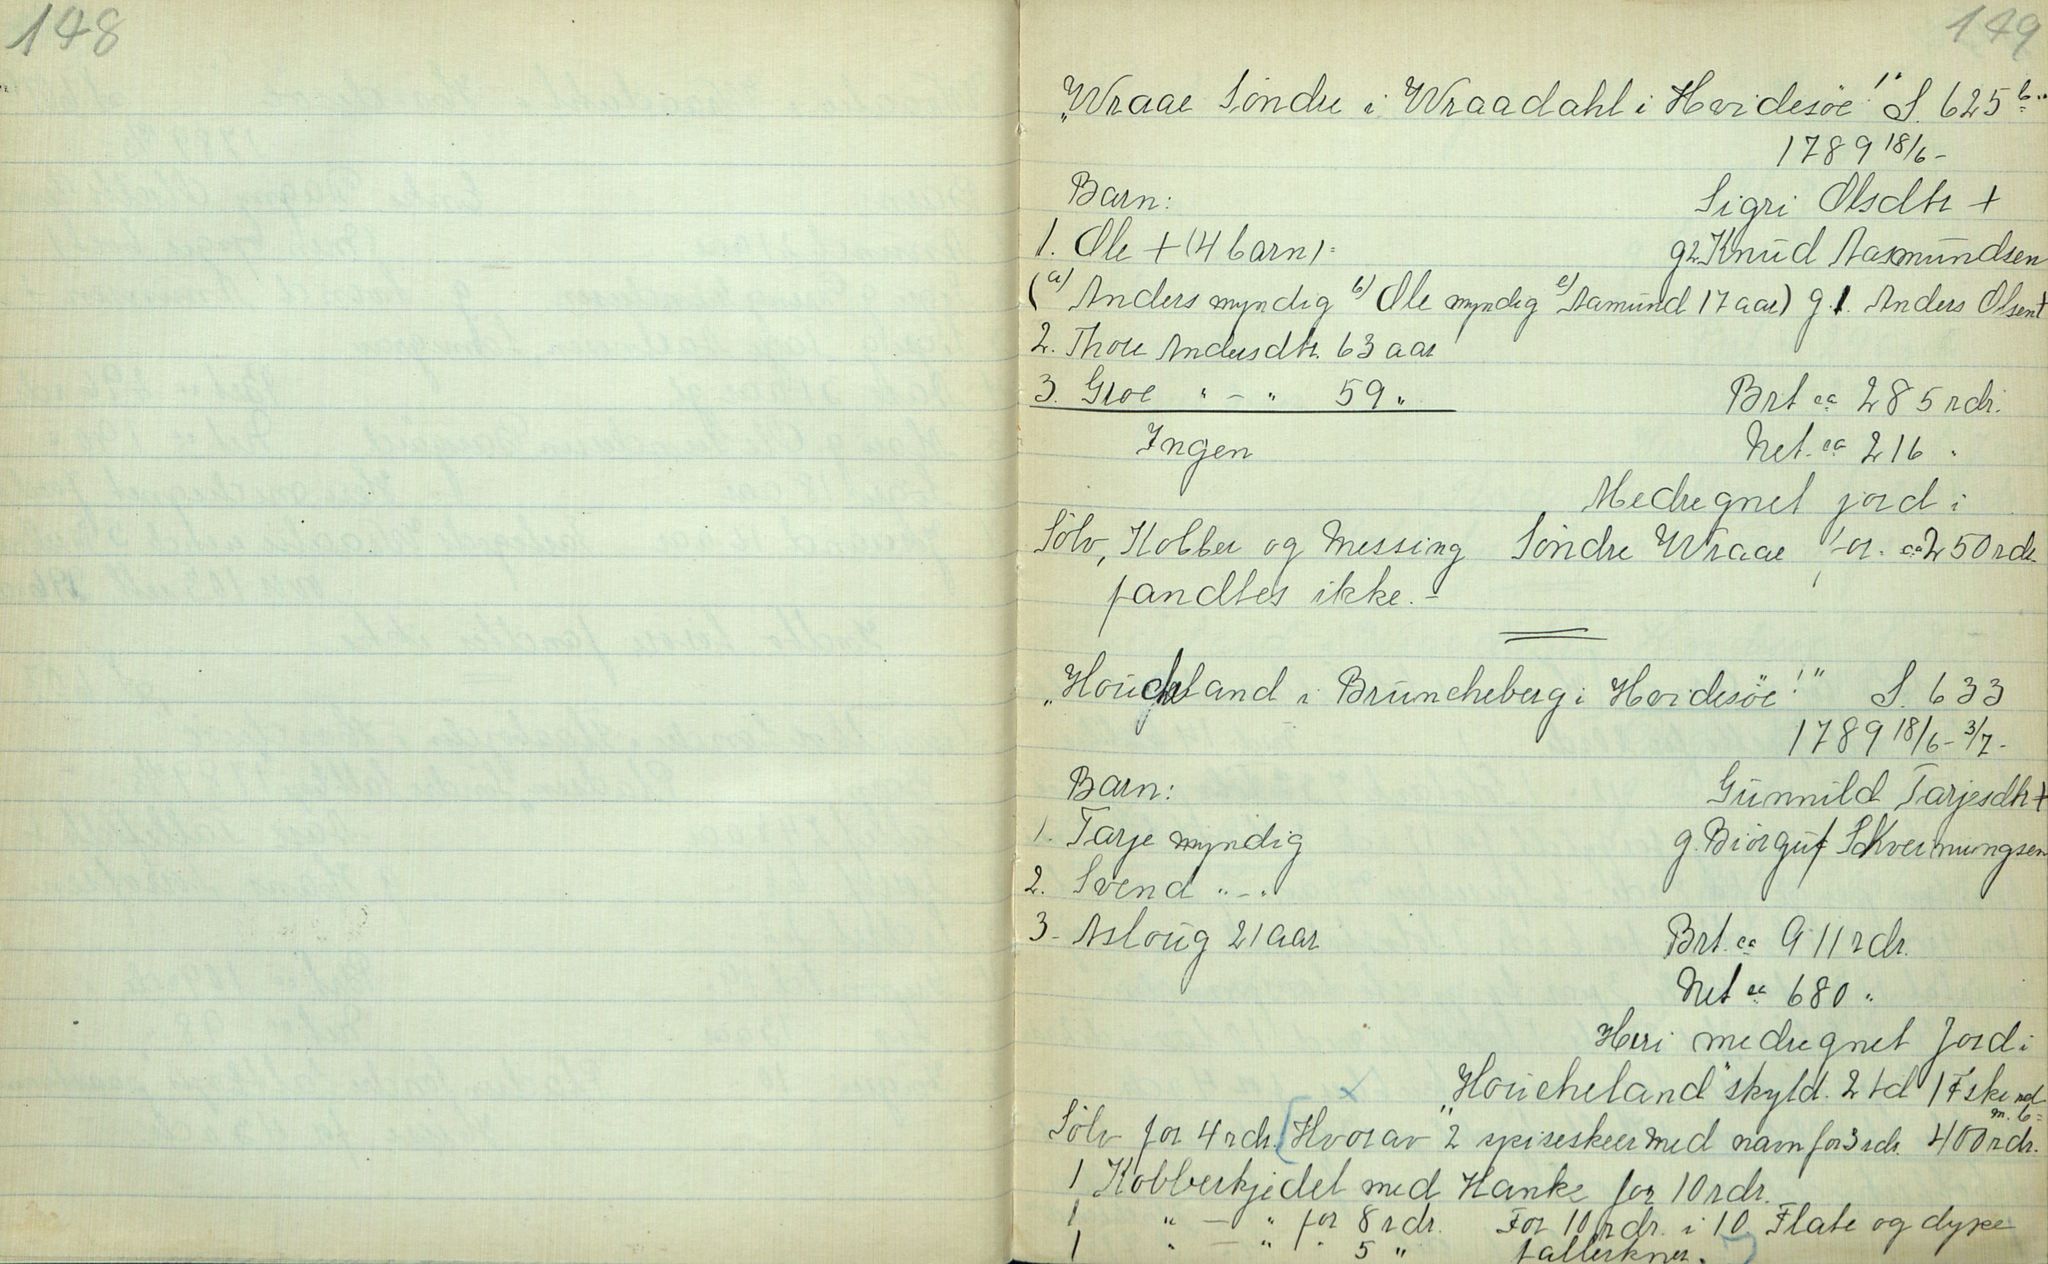 148
149
"Wraae Söndre i Wraadahl i Hvidesöe!" S. 625 b.
1789 18/6 -
Barn:
Sigri Olsdtr +
1. Ole + (4 barn):
g2 Knud Aasmundsen
(a) Anders myndig b) Ole myndig c) Aamund 17 aar) g.1. Anders Olsen +
2. Thore Andersdtr. 63 aar
3. Groe " - " 59 "
Brt ca 285 rdr.
Ingen
Net. ca 216 "
Medregnet jord i
Sölv, Kobber og Messing Söndre Wraae for ca 250 rdr
fandtes ikke. -
"Houcheland i Bruncheberg i Hvidesöe!" S. 633
1789 18/6 - 3/7 -
Barn:
Gunnild Tarjesdtr +
1. Tarje myndig
g. Biörguf Skvermungsen
2. Svend " - "
3 - Asloug 21 aar
Brt. ca 911 rdr.
Net ca 680 "
Heri medregnet Jord i
"Houcheland" skyld. 2 td 1 Fske med
m. b =
Sölv for 4 rdr. [Hvorav 2 spiseskeer med navn for 3 rdr. 400 rdr.
1 Kobberkjedel med Hanke for 10 rdr.
1 " - " for 8 rdr. For 10 rdr. i 10 Flate og dype
1 " - " " 5 " tallerkner.